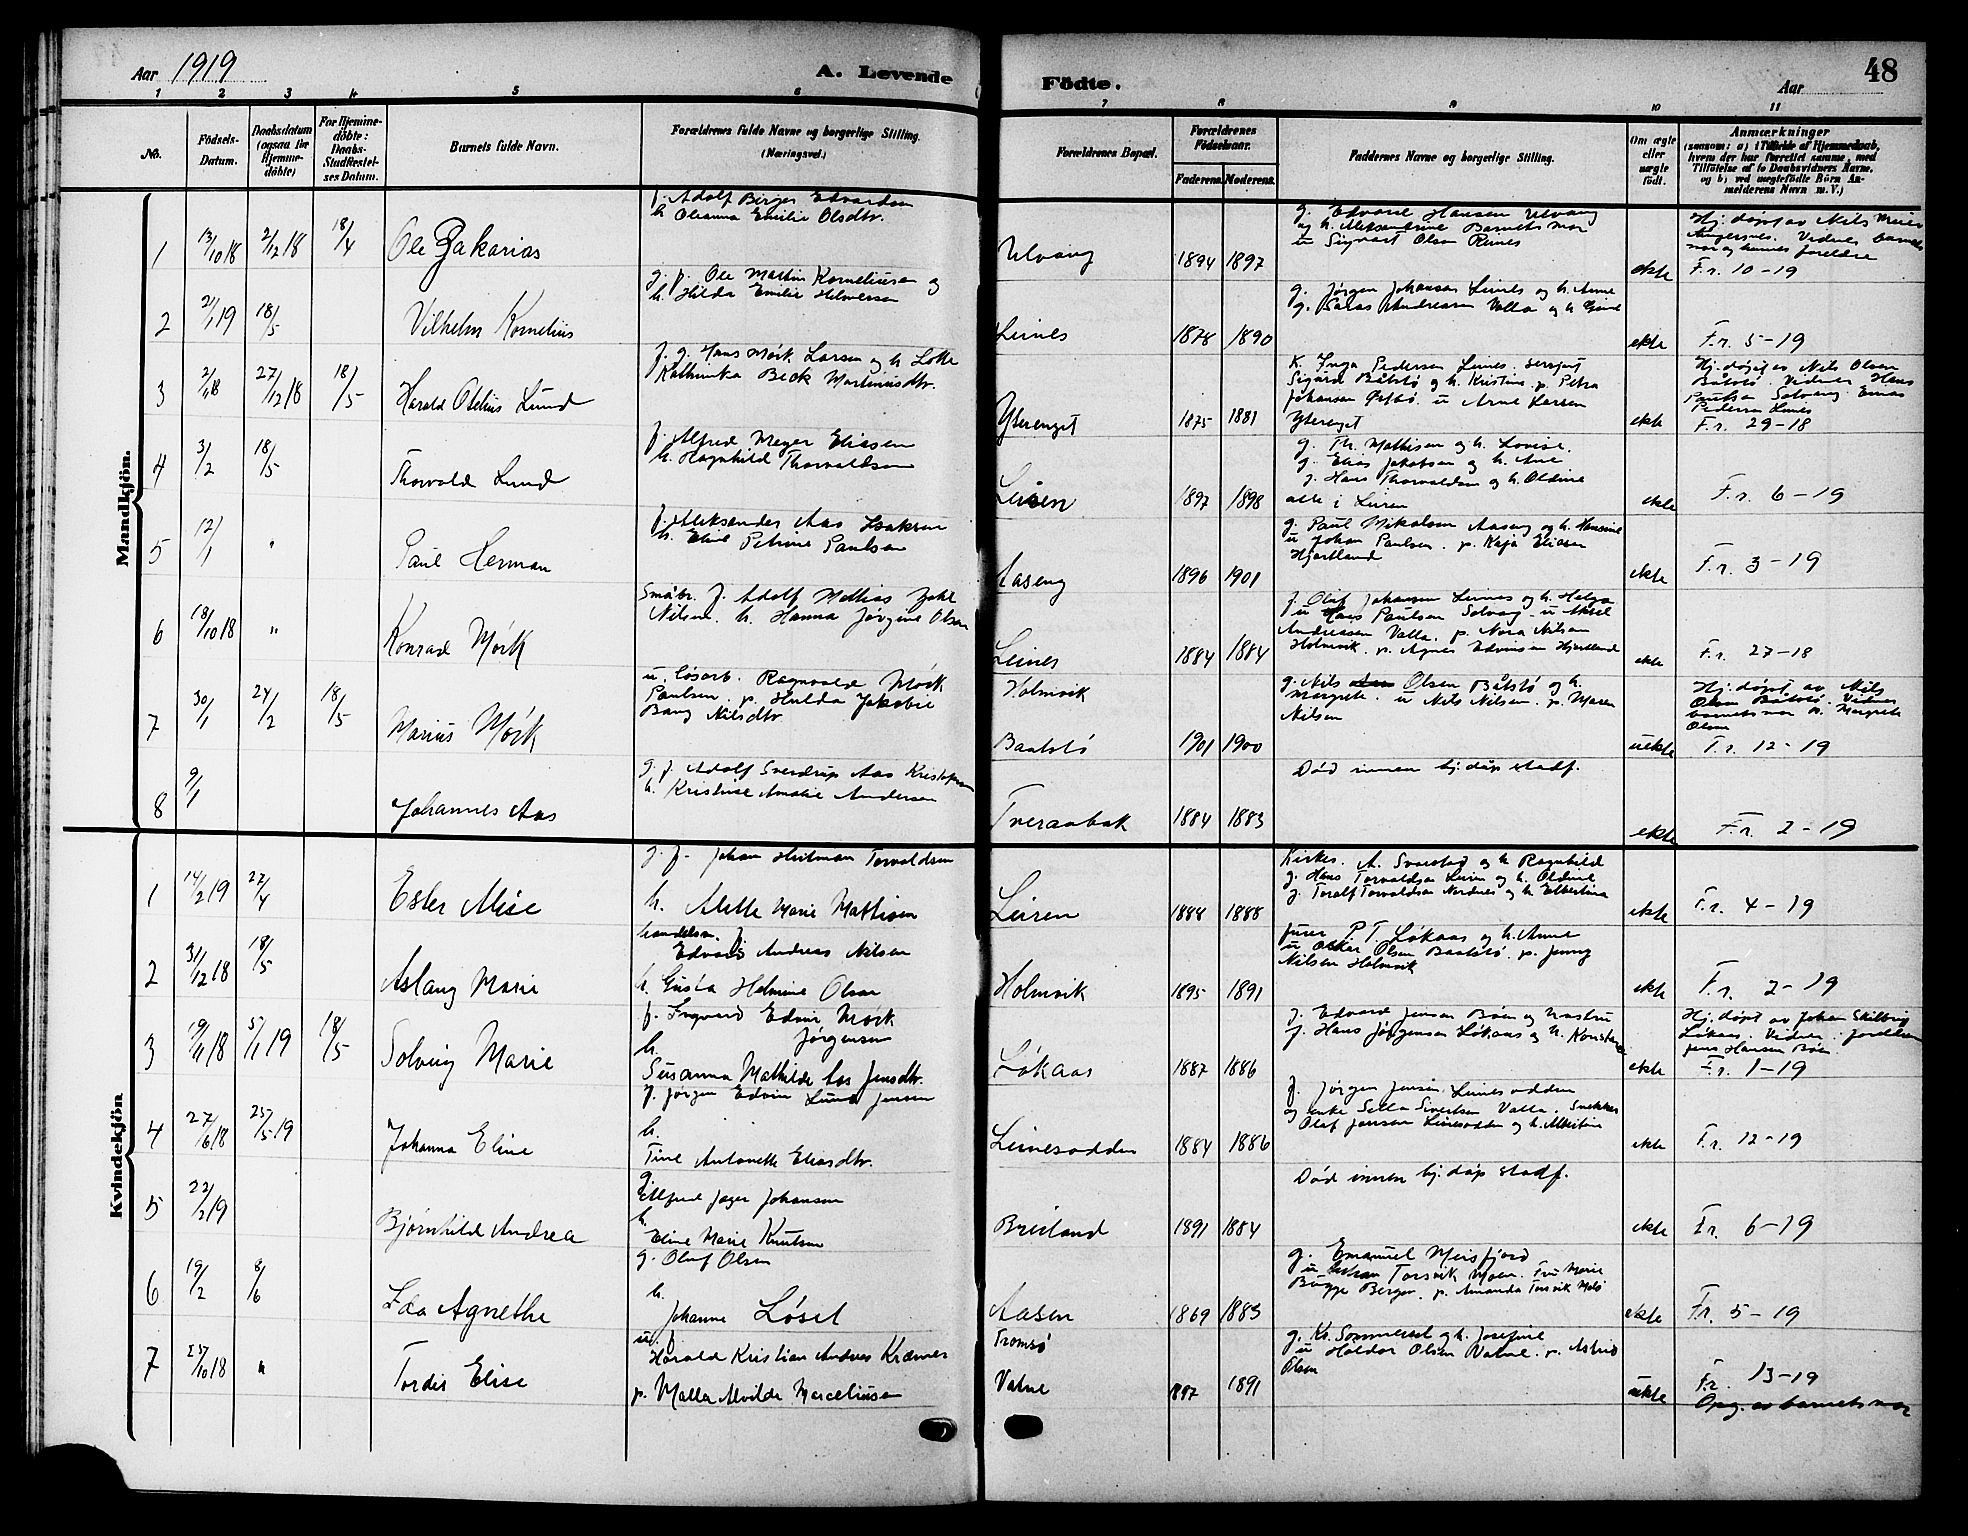 Aar 1919
A. Levende
Födte.
Aar
48
1 2 3 4 5 6 7 8 9 10 11
No.
Födsels-Datum.
Daabsdatum (ogsaa for Hjemmedöbte)
For Hjemmedöbte: Daabs-Stadfæstelses Datum.
Barnets fulde Navn.
Forældrenes fulde Navne og borgerlige Stilling.
(Næringsvei.)
Forældrenes Bopæl.
Forældrenes Födselsaar.
Faderens. Moderens.
Faddernes Navne og borgerlige Stilling.
Om ægte eller uægte födt.
Anmærkninger
(saasom: a) i Tilfælde af Hjemmedaab, hvem der har forrettet samme, med Tilföielse af to Daabsvidners Navne, og b) ved uægtefödte Börn Anmelderens Navn m. V.)
Mandkjön.
1 13/10 18 2/12 18 18/4 Ole Zakarias
f. Adolf Birger Edvardsen
h. Oleanna Emilie Olsdtr.
Ulvang 1894 1897
g. Edvard Hansen Ulvang
og h. Aleksandrine Barnets mor
u Sigvart Olsen Reines
ekte
Hj. døpt av Nils Meier
Vidner barnets
mor og hennes foreldre
Fr. 10-19
2 2/1 19 18/5 Vilhelm Kornelius
g. f. Ole Martin Korneliusen og
h. Hilda Emilie Helmersen
Leines 1878 1890
g. Jørgen Johansen Leines og h. Anne
g. Andreasen Valla og h.
ekte Fr. 5-19
3 27/12 18 18/5 Harald Otelius Lund
f. g. Hans Mørk Larsen og h. Lotte
Kathinka Beck Martinusdtr.
Ytterenget 1875 1881
K. Inga Pedersen Leines. sersjant
Sigurd Båtstø og h. Kristine p. Petra
Johansen u Arne Larsen
Ytterenget
ekte
Hj. døpt av Nils Olsen
Båtstø. Vidner Hans
Paulsen Solvang
Pedersen Leines
Fr. 29-18
4 3/2 18/5 Thorvald Lund
f. Alfred Meyer Eliassen
h. Hagnhild Thorvaldsen
Leiren 1897 1898
g. Th. Mathisen og h. Lovise.
g. Elias Jakobsen og h. Ane
g. Hans Thorvaldsen og h. Oldine
alle i Leiren
ekte Fr. 6-19
5 12/1 " Paul Herman
f. Aleksander Aas Isaksen
h. Eline Petrine Paulsen
Aaseng 1896 1901
g. Paul Mikalsen Aaseng og h. Hansine
u Johan Paulsen. p. Kaja Eliasen
Hjartland
ekte Fr. 3-19
6 18/10 18 " Konrad Mørk
Småbr. f. Adolf Mathias
Nilsen. h. Hanna Jørgine Olsen
Leines 1884 1884
f. Olaf Johansen Leines og h. Helga
u Hans Paulsen Solvang. u Aksel
Andreassen Valla. p. Nora Nilsen
Holmvik. p. Agnes Edvinsen Hjartland
ekte Fr. 27-18
7 30/1 24/2 18/5 Marius Mørk
u. løsarb. Ragnvald Mørk
Paulsen. p. Hulda Jakobie
Bang Nilsdtr.
Holmvik
Baatstø 1901 1900
g. Nils Olsen Båtstø og h.
Margrete. u Nils Nilsen. p. Maren
Nilsen
uekte
Hj. døpt av Nils
Olsen Båtstø. Vidner
barnets mor og Margrete
Olsen
Fr. 12-19
8 9/1 Johannes Aas
g. f. Adolf Sverdrup Aas Kristofersen
h. Kristine Amalie Andersen
Tveraabak 1884 1883
Død innen hj. døp stadf.
ekte Fr. 2-19
Kvindekjön
1 14/2 19 27/4 Ester Alise
g. f. Johan Hertman Torvaldsen
h. Alette Marie Mattisen
Leiren 1888 1888
Kirkes. A. Svarstad og h. Ragnhild
g. Hans Torvaldsen Leiren og h. Oldine
g. Toralf Torvaldsen Nordnes og h. Elbertina
ekte Fr. 4-19
2 31/12 18 18/5 Aslaug Marie
handelsm. f.
Edvard Andreas Nilsen
h. Gusta Helmine Olsen
Holmvik 1895 1891
furer P T Løkaas og h. Anne
u Oskar Olsen Baatstø. p. Jenny
Nilsen Holmvik
ekte Fr. 2-19
3 19/11 18 5/1 19 18/5 Solveig Marie
f. Ingvard Edvin Mørk
Jørgensen
h.
Susanna Mathilde Aas Jensdtr.
Løkaas 1887 1886
f. Edvard Jensen Bøen og hustru
f. Hans Jørgensen Løkaas og h. Konstanse
ekte
Hj. døpt av Johan Skilbrig
Løkaas. Vidner
Jens Hansen Bøen
Fr. 1-19
4 27/6 18 25/5 19 Johanna Eline
f. Jørgen Edvin Lund Jensen
h.
Tine Antonette Eliasdtr.
Leinesodden 1884 1886
f. Jørgen Jensen Leinesodden
og enke Sella Sivertsen Valla. Snekker
Olaf Jensen Leinesodden og h. Albertine
ekte Fr. 12-19
5 22/2 19 Bjørnhild Andrea
g.
Elfred Jager Johansen
h.
Eline Marie Knutsen
Breiland 1891 1884
Død innen hj. døp stadf.
ekte Fr. 6-19
6 19/2 8/6 Eda Agnethe
g. Oluf Olsen
h.
Johanne Løset
Aasen 1869 1883
g. Emanuel Meisfjord
u Johan Torsvik Moen. Fru Marie
Bugge Berger. p. Amanda Torsvik
ekte Fr. 5-19
7 25/10 18 " Tordis Elise
u. f.
Harald Kristian Andreas Kræmer
p. Malla Alvilde Marceliusen
Tromsø
Vatne 1887 1891
g. Kr. Sommerset og h. Josefine
u Haldor Olsen Vatne. p. Astrid
Olsen
uekte
Fr. 13-19
Opg. av barnets mor